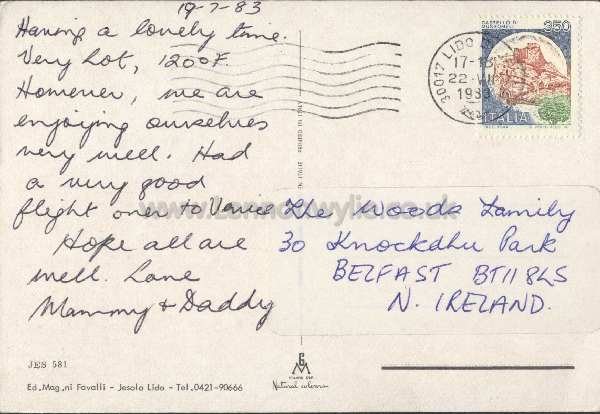 19-7-83
Having a lovely time.
Very hot, 120°F.
However, we are
enjoying ourselves
very well. Had
a very good
flight over to Venice
Hope all are
well. Love
Mammy & Daddy
The Woods Family
30 Knockdhu Park
BELFAST BT11 8LS
N. IRELAND.
CASTELLO DI
MUSSOMELI
350
ITALIA
30017 LIDO DI
17-18
22-VII
1983
JES 581
Ed. Mag.ni Favalli - Jesolo Lido - Tel. 0421-90666
Natural colours